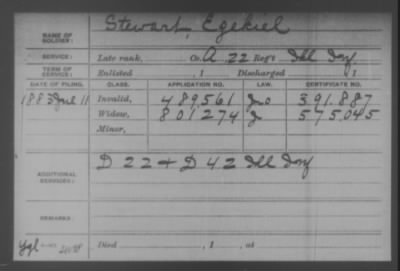 NAME OF SOLDIER: Stewart, Ezekiel
SERVICE: Late rank, Co. A, 22 Reg't Ill Inf
TERM OF SERVICE: Enlisted , 1 Discharged , 1
DATE OF FILING. CLASS. APPLICATION NO. LAW. CERTIFICATE NO.
1883 Jul 11 Invalid, 489,561 391.887
Widow, 801274 575,045
Minor,
ADDITIONAL SERVICES: D 22 + D 42 Ill Inf
REMARKS:
Died , 1 , at